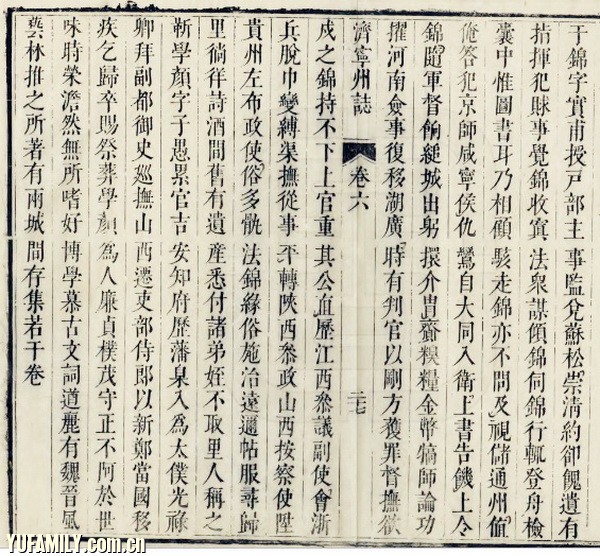 于錦字實甫授戸部主事監兌蘇松崇清約卻餽遺有
掯揮犯賕事覺錦收寘法衆謀傾錦伺錦行輒登舟檢
囊中惟圖書耳乃相顧駭走錦亦不問及視儲通州値
俺答犯京師咸寧侯仇鸞自大同入衛上書告饑上令
錦隨軍督餉縋城出躬擐介冑齎糗糧金幣犒師論功
擢河南僉事復移湖廣時有判官以剛方獲罪督撫欲
濟寧州誌 卷六 二七
戍之錦持不下上官重其公直歷江西叅議副使會浙
兵脫巾變縛渠撫從事平轉陜西叅政山西按察使陞
貴州左布政使俗多骩法錦緣俗施治遠邇帖服尋歸
里徜徉詩酒間舊有遺產悉付諸弟姪不取里人稱之
靳學顏字子愚累官吉安知府歷藩臬入爲太僕光祿
卿拜副都御史巡撫山西遷吏部侍郎以新鄭當國移
疾乞歸卒賜祭葬學顏爲人廉貞樸茂守正不阿於世
味時榮澹然無所嗜好博學慕古文詞遒麗有魏晉風
藝林推之所著有兩城間存集若干卷
YUFAMILY.com.cn
YUFAMILY.com.cn